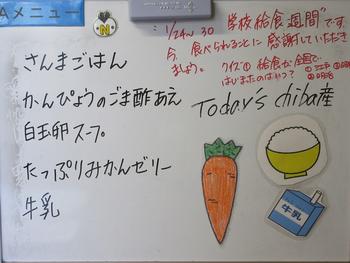 Aメニュー
N
1/24~30 "学校給食週間"です。
今、食べられることに感謝していただき
ましょう。
クイズ① 給食が全国で
はじまったのはいつ?
さんまごはん
かんぴょうのごま酢あえ
白玉卵スープ
たっぷりみかんゼリー
牛乳
Today's chiba産
牛乳